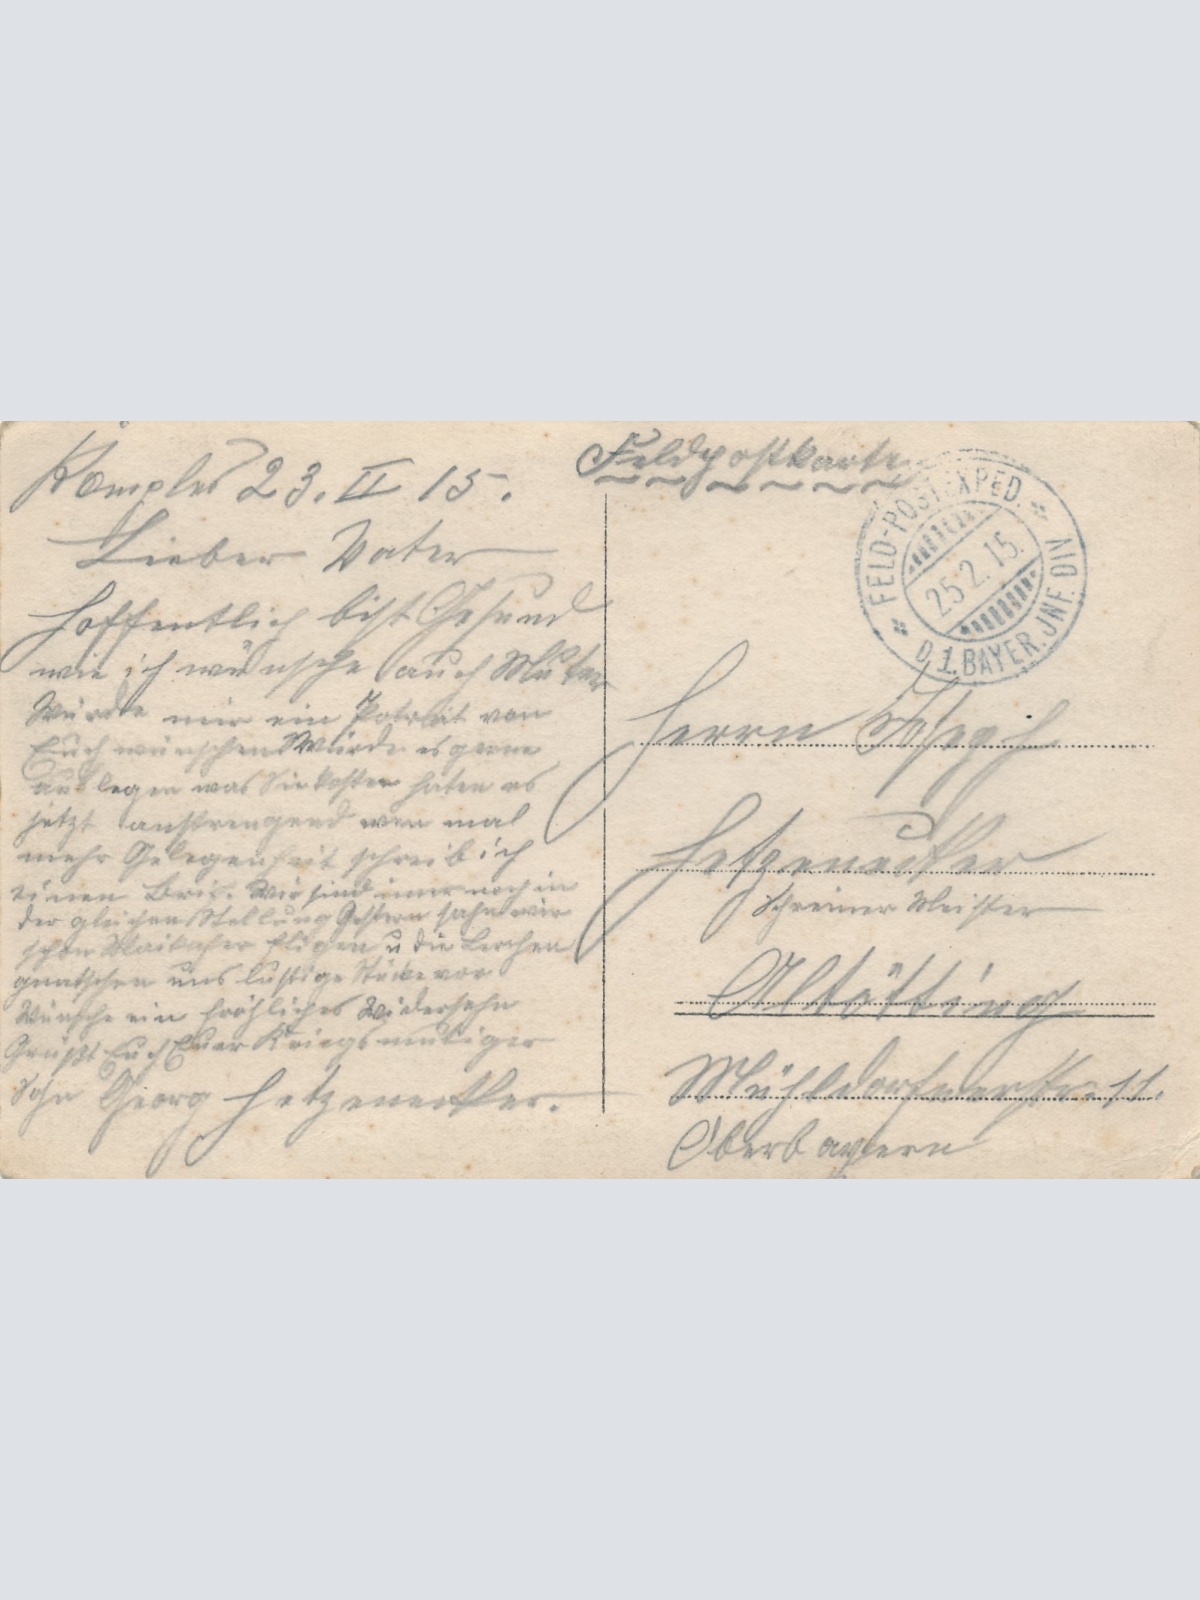 Komples 23. II 15.
Lieber Vater
Hoffentlich bist Gesund
wie ich wünsche auch Muter
Würde mir ein Potrait von
Euch wünschen Würde es gerne
auslegen was Sie kosten haten es
jetzt anstrengend wen mal
mehr Gelegenheit schreib ich
einen Brif. Wir sind imer noch in
der gleichen Stellung Gestern sahn wir
schon Maikäfer fligen u die Lerchen
quatschen uns lustige Stücke vor
Wünsche ein fröhliches Widersehn
Grüßt Euch Euer Kriegsmutiger
Sohn Georg Hetzenecker.
Feldpostkarte
FELD-POSTEXPED.
25.2.15.
D. 1. BAYER. JNF. DIV
Herrn Josef
Hetzenecker
Schreiner Meister
Altötting
Mühldorferstr. 11.
Oberbayern